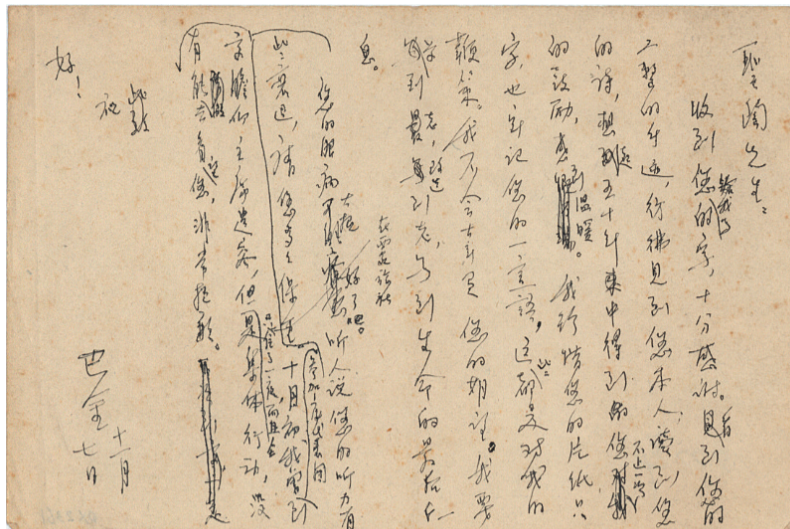 圣陶先生：
收到您给我写的字，十分感谢。看到您的
工整的手迹，仿佛见到您本人，读到您
的诗，想起五十年来中得到您不止一次
的鼓励，感到温暖。我珍惜您的片纸只
字，也牢记您的一言一语，这些都是对我的
鞭策。我不会辜负您的期望。我要
学到老，改造到老，写到生命的最后一
息。
您的眼病大概好了吧。听人说您的听力有
些衰退，请您多多保重。十月初我曾到
北京瞻仰主席遗容，但是集体行动，
没有能去看您，非常抱歉。
此致
祝
好！
巴金
十一月
七日